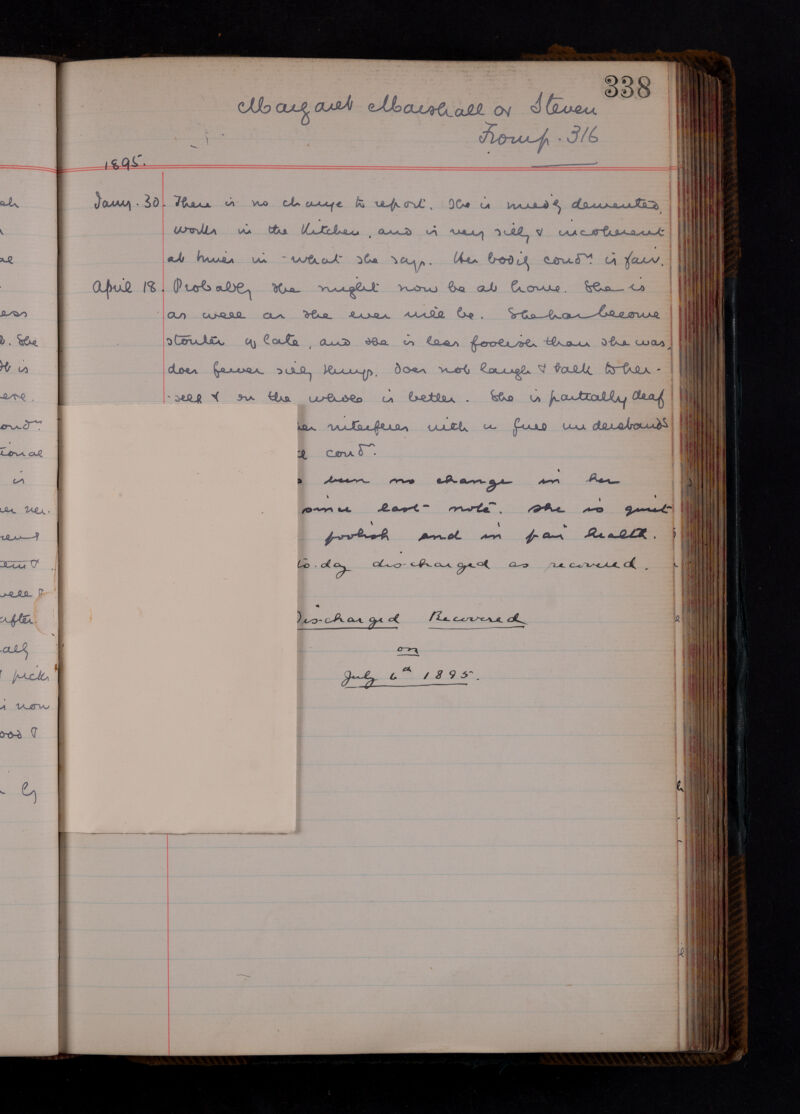 338
Margaret Marshall or Steven
From p. 316
1895.
Jany. 30. There is no change to report. She is mildly demented,
works in the Kitchen, and is very silly & incoherent
at times in what she says. Her bodily condn. is fair.
April 18. Probably she might now be at home. She is
as well as she ever will be. She has become
stouter of late, and she is less foolish than she was,
does fewer silly things, does not laugh & talk to her-
-self & on the whole is better. She is partially deaf
interferes with a full understands
condn.
been no change in her
since last note. She is quiet
foolish and in fair health.
to-day discharged as recovered.
Discharged Recovered
on
July 6th 1895.
She
is
in
after
picks
now